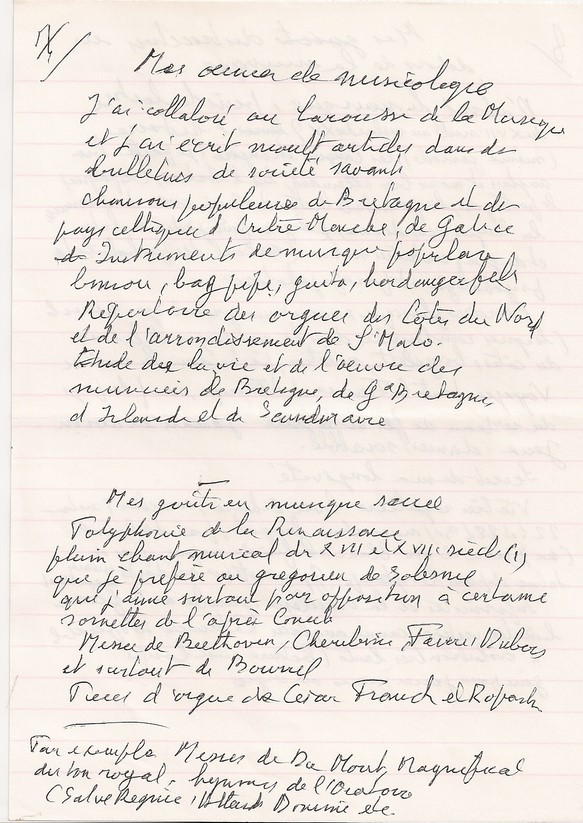 Mes oeuvres de musicologie
J'ai collaboré au Larousse de la Musique
et j'ai écrit moult articles dans des
bulletins de société savante
chansons populaires de Bretagne et des
pays celtiques d'Outre Manche, de Galice
Instruments de musique populaire
biniou, bag pipe, guita, hardangerfele
Répertoire des orgues des Côtes du Nord
et de l'arrondissement de St Malo.
Etude de la vie et de l'oeuvre des
musiciens de Bretagne, de Gde Bretagne,
d'Irlande et de Scandinavie
Mes goûts en musique sacrée
Polyphonie de la Renaissance
plain chant musical du XVII et XVIII siècle (1)
que je préfère au grégorien de Solesmes
que j'aime surtout par opposition à certaine
sornettes de l'après Concile
Messes de Beethoven, Cherubini, Fauré, Dubois
et surtout de
Pièces d'orgue de César Franck et Ropartz
Par exemple Messes de Du Mont, Magnificat
du ton royal, hymnes de l'Oratoire
(Salve Regina, Domine etc.